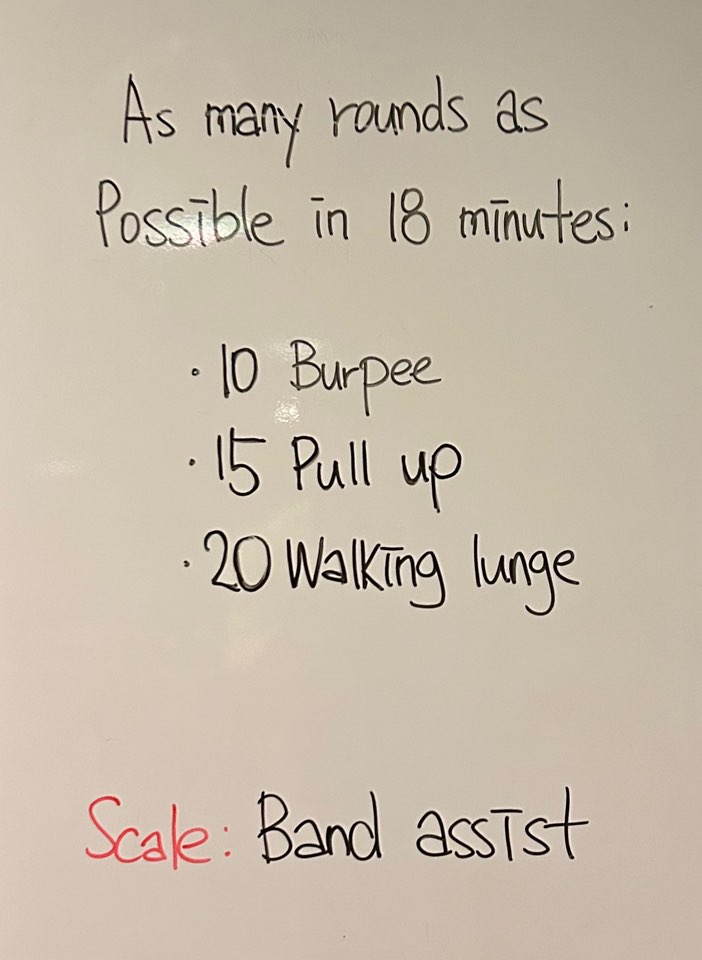 As many rounds as
Possible in 18 minutes:
· 10 Burpee
· 15 Pull up
· 20 Walking lunge
Scale: Band assist